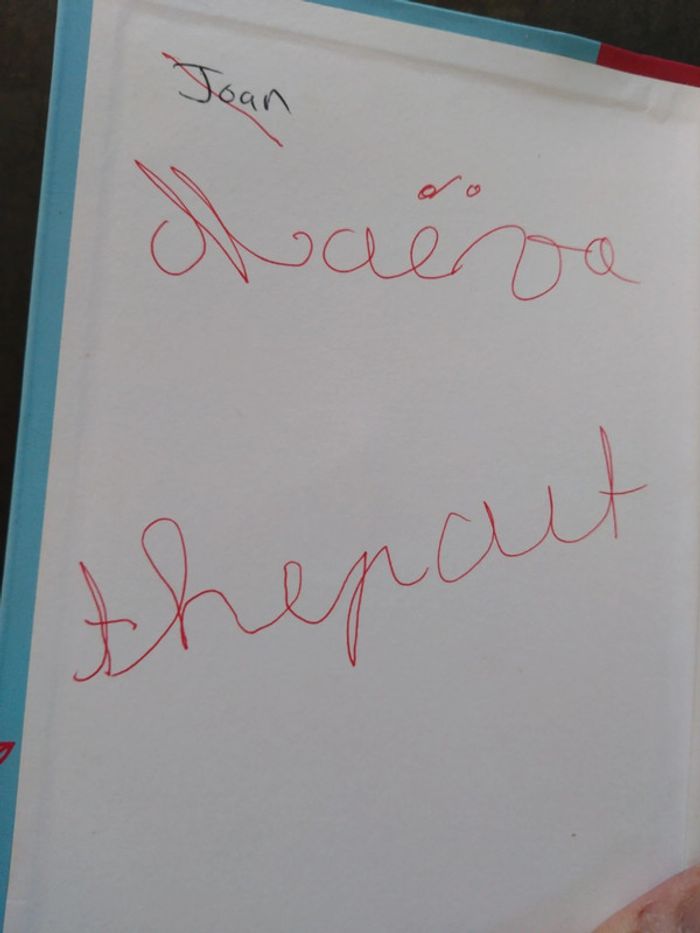 Joan
Maëva
thepaut